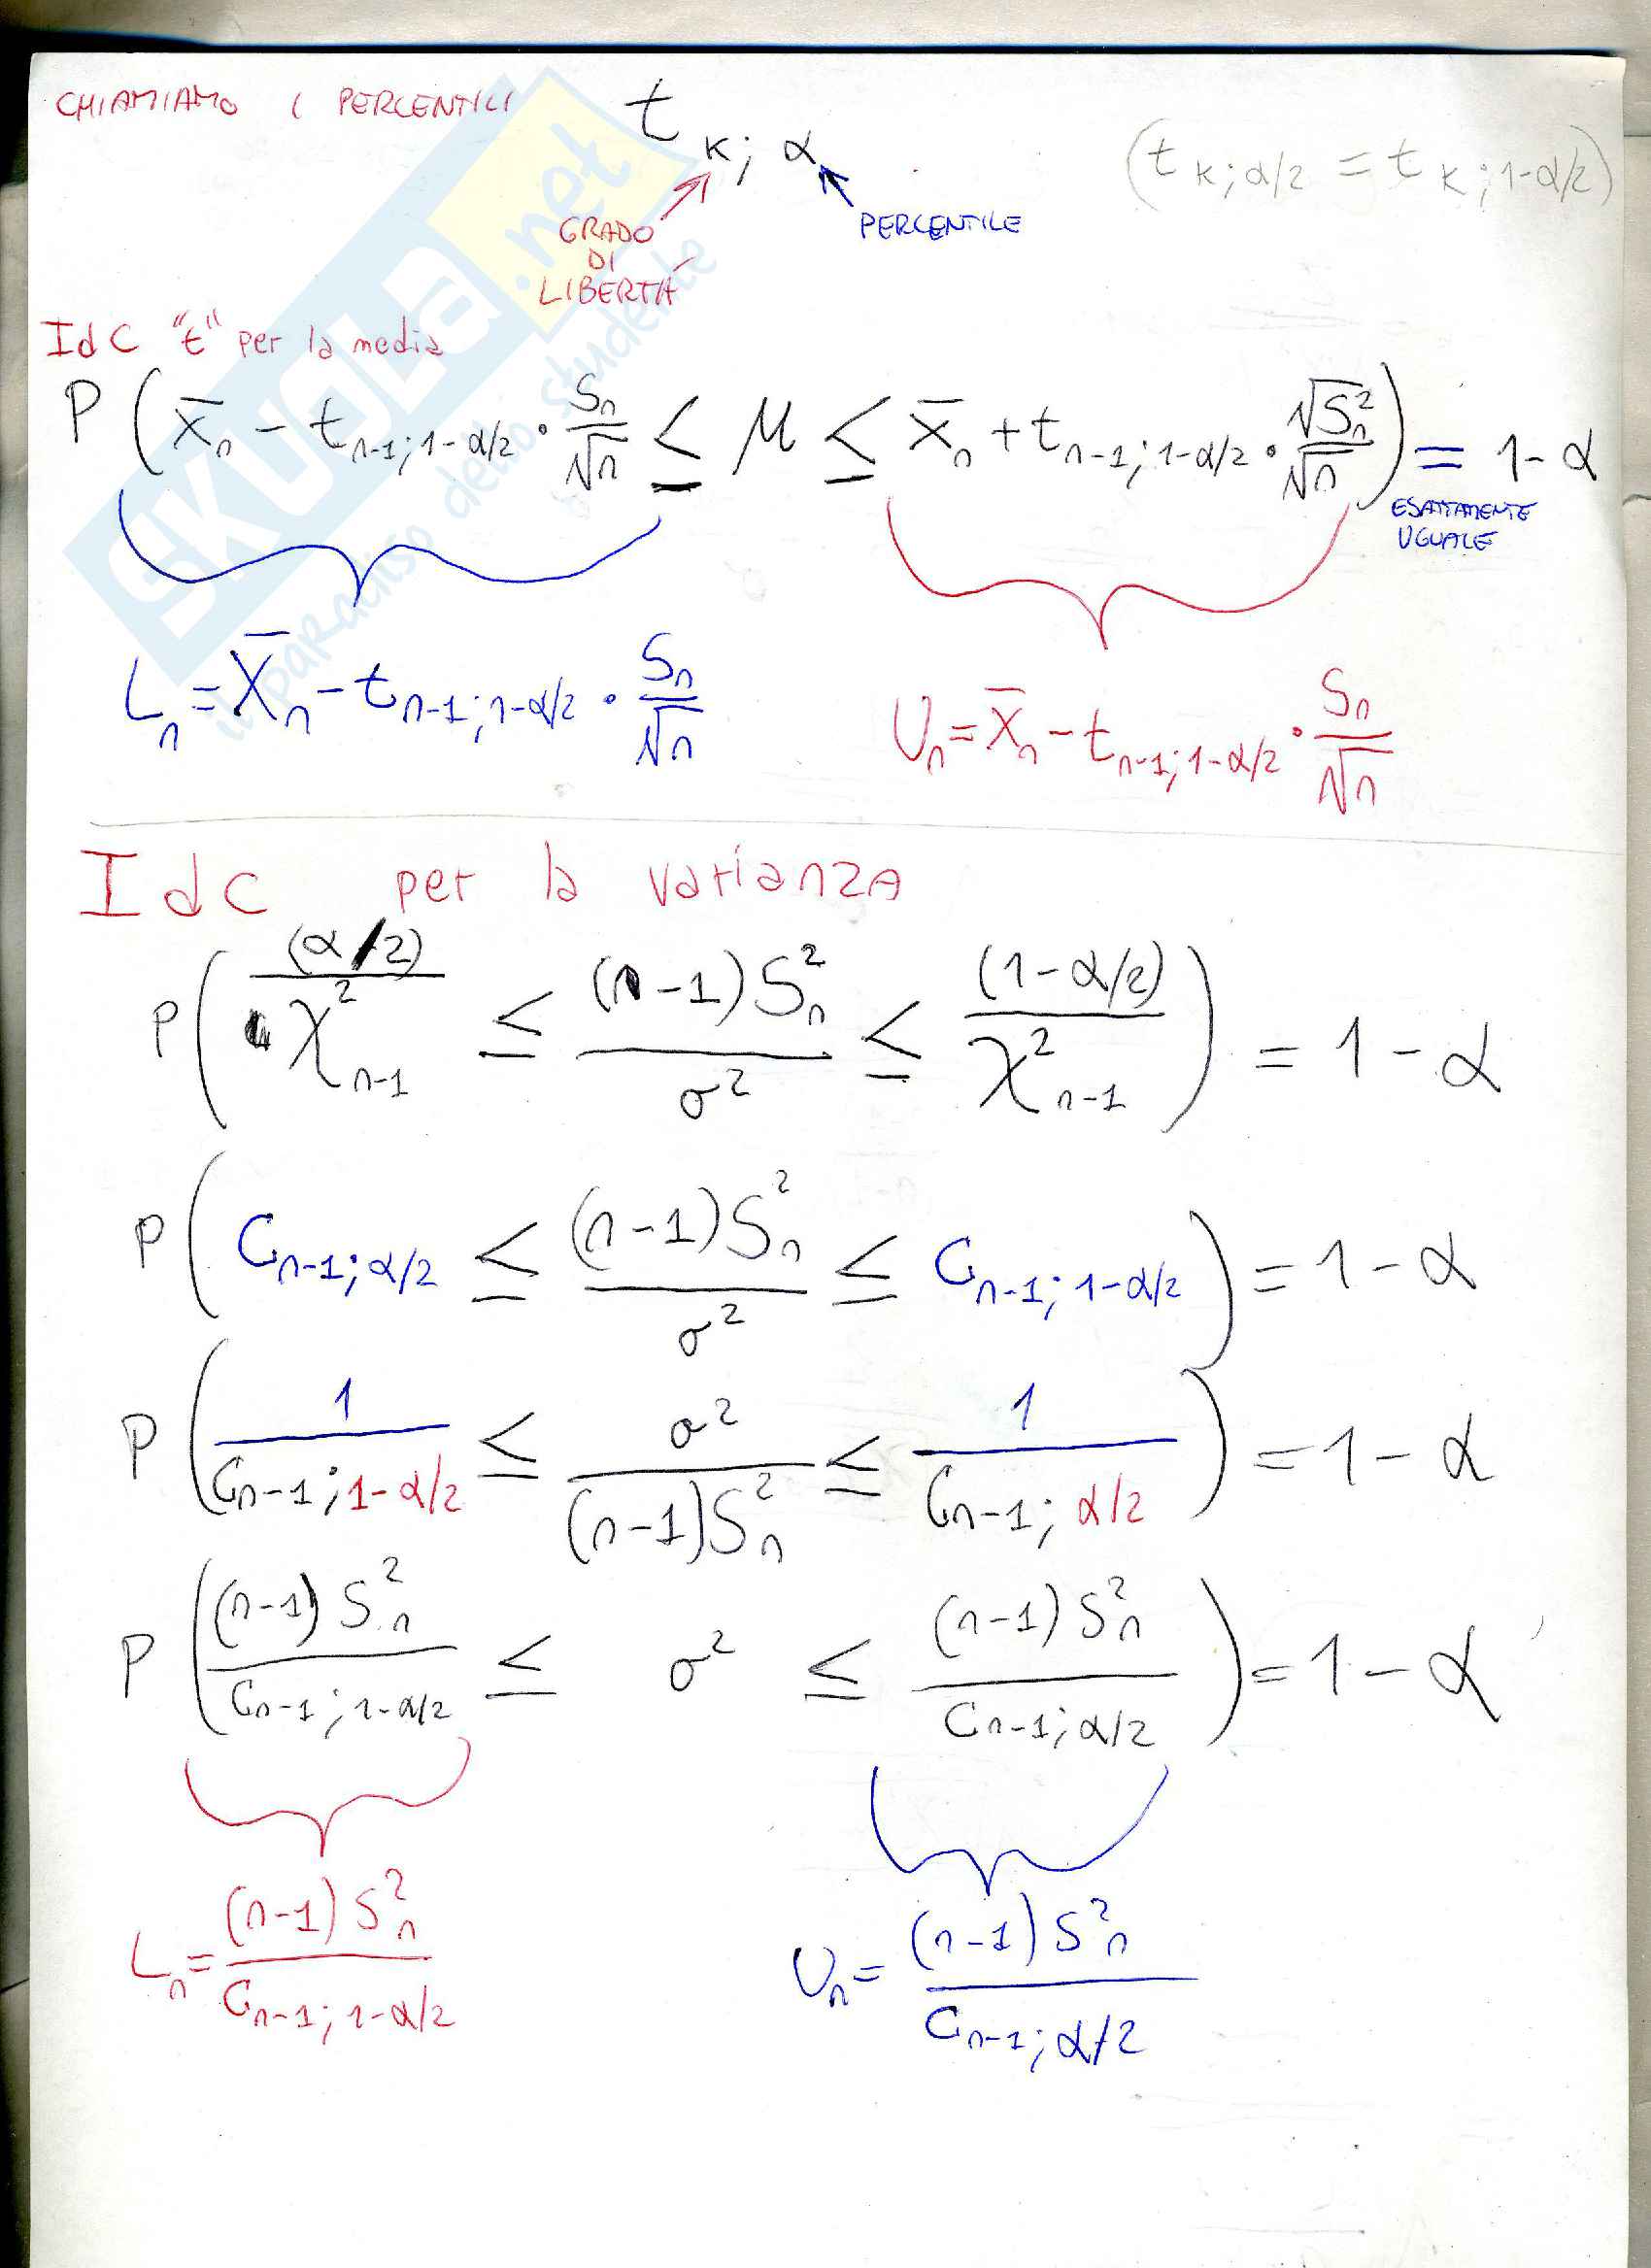 CHIAMIAMO I PERCENTILI t k; α (t k; α/2 = t k; 1-α/2)
GRADO DI LIBERTÁ PERCENTILE
SKUOLA.net
il paradiso dello studente
IdC "t" per la media
P( x̄n - t n-1; 1-α/2 · Sn/√n ≤ μ ≤ x̄n + t n-1; 1-α/2 · √S²n/√n ) = 1-α
ESATTAMENTE UGUALE
Ln = X̄n - t n-1; 1-α/2 · Sn/√n
Un = X̄n - t n-1; 1-α/2 · Sn/√n
IdC per la varianza
P( (α/2)/χ²n-1 ≤ (n-1)S²n/σ² ≤ (1-α/2)/χ²n-1 ) = 1-α
P( C n-1; α/2 ≤ (n-1)S²n/σ² ≤ C n-1; 1-α/2 ) = 1-α
P( 1/C n-1; 1-α/2 ≤ σ²/(n-1)S²n ≤ 1/C n-1; α/2 ) = 1-α
P( (n-1)S²n/C n-1; 1-α/2 ≤ σ² ≤ (n-1)S²n/C n-1; α/2 ) = 1-α
Ln = (n-1)S²n/C n-1; 1-α/2
Un = (n-1)S²n/C n-1; α/2